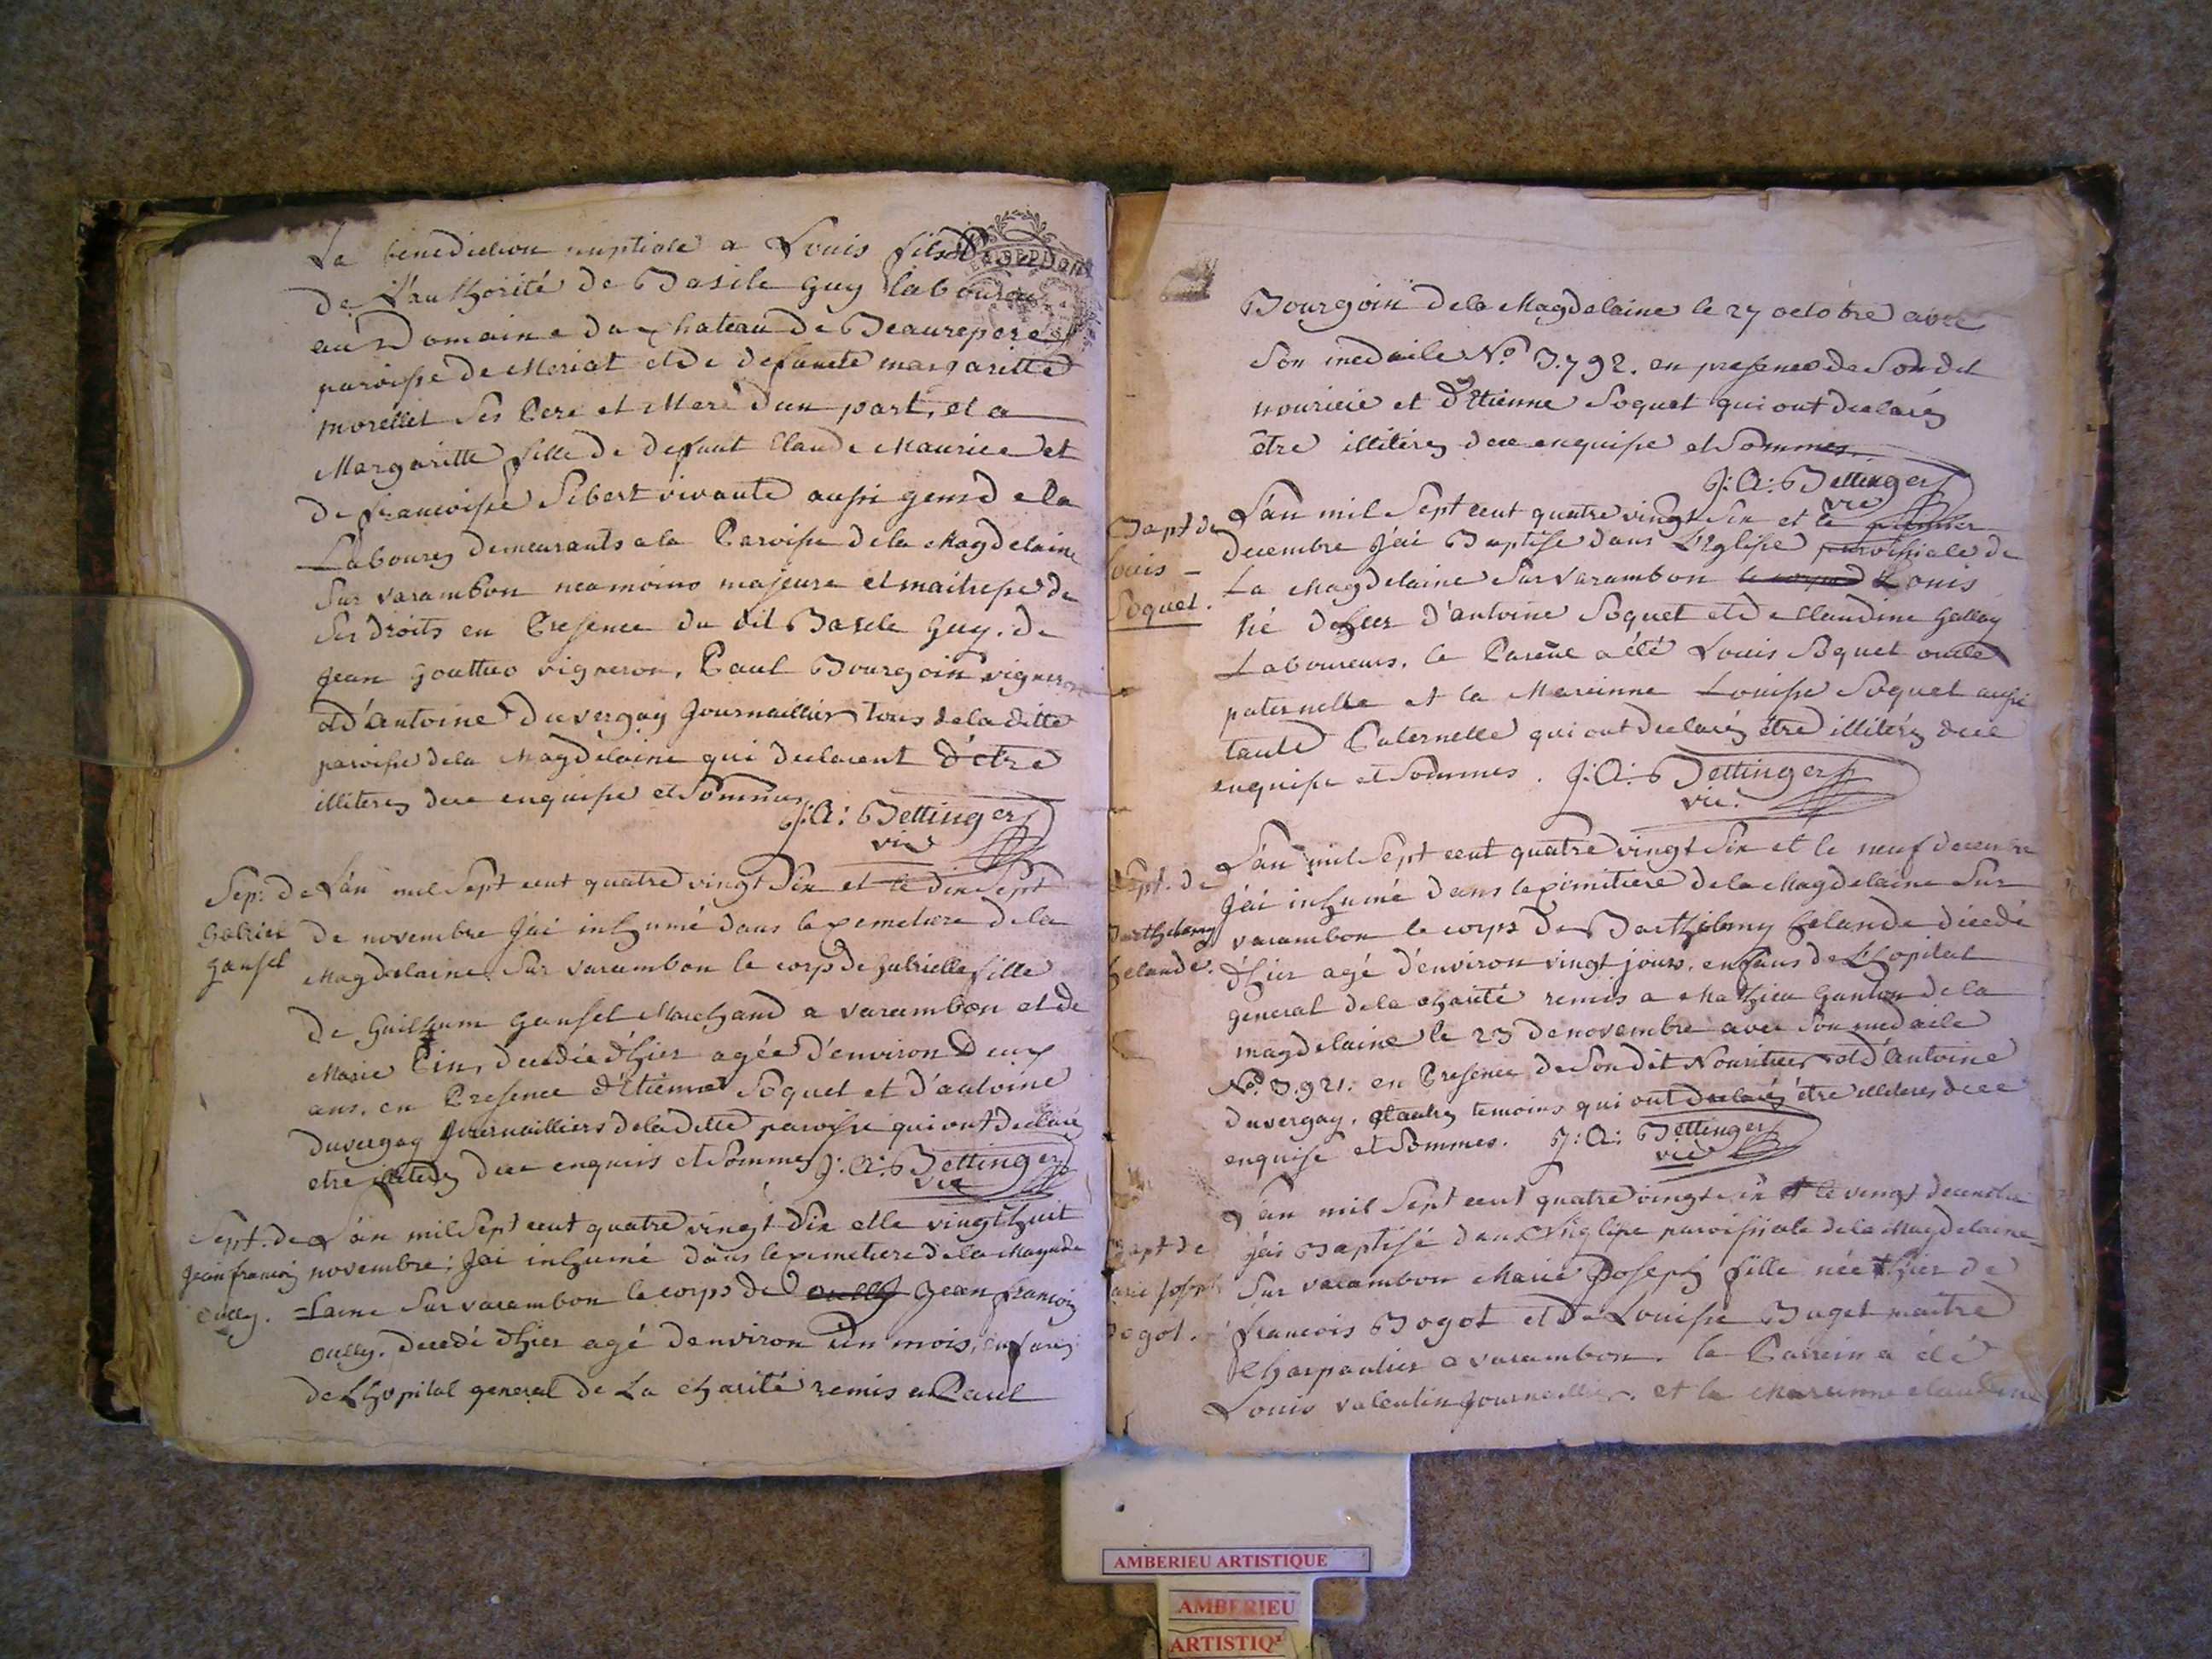 La benediction nuptiale a Louis fils
de L'authorité de Basile Guy laboureur
au Domaine du Chateau de Beaurepere
paroisse de Meriat et de defuncte margaritte
morellet ses Pere et Mere d'un part, et a
Margaritte fille de defunt Claude Maurice et
de francoise Sibert vivante aussi gens de la
Laboures demeurants a la Paroisse de la Magdelaine
sur varambon neamoins majeure et maitresse de
ses droits en Presence du dit Basile Guy. de
Jean Gouttuo vigneron, Paul Bourgoin vigneron
et d'antoine Duvergay Journaillier tous de la ditte
paroisse de la Magdelaine qui declarent d'etre
illiteres de ce enquise et sommes
J: A: Bettinger
vic
Sep: de
Gabriel
Gansel
L'an mil sept cent quatre vingt six et le dix sept
de novembre J'ai inhumé dans le cemetiere de la
Magdelaine sur varambon le corps de Gabrielle fille
de Guilhum Gansel Marchand a varambon et de
Marie Pin, decedée d'hier agée d'environ Deux
ans. en Presence d'Etienne Soquet et d'antoine
Duvergay Journailliers de la ditte paroisse qui ont declaré
etre illiteres de ce enquis et sommes J: A: Bettinger
vic
Sept. de
Jean francois
oully.
L'an mil sept cent quatre vingt six et le vingt huit
novembre; J'ai inhumé dans le cemetiere de la Magude
=laine sur varambon le corps de oully Jean francois
oully. decedé d'hier agé d'environ un mois, enfans
de L'hopital general de La charité remis a Paul
Bourgoin de la Magdelaine le 27 octobre avec
son medaile N.º 3.792. en presence de son dit
nouricie et d'Etienne Soquet qui ont declarés
être illitérés de ce enquise et sommes.
J: A: Bettinger
vic
Bapt de
Louis
Soquet.
L'an mil sept cent quatre vingt six et le premier
decembre J'ai Baptise dans L'Eglise paroissiale de
La Magdelaine sur varambon le corps d Louis
né d'hier d'antoine Soquet et de Claudine Gallay
Laboureurs. le Parein a été Louis Soquet oncle
paternelle et la Mareinne Louise Soquet aussi
tante Paternelle qui ont declarés être illitérés de ce
enquise et sommes. J: A: Bettinger
vic.
Sept. de
Barthelemy
Celande.
L'an mil sept cent quatre vingt six et le neuf decembre
J'ai inhumé dans le cimitiere de la Magdelaine sur
varambon le corps de Barthelemy Celande décedé
d'hier agé d'environ vingt jours. enfans de L'hopital
general de la charité remis a Mathieu Ganton de la
magdelaine le 23 de novembre avec son medaile
N.º 3.921. en Presence de son dit Nouritier et d'antoine
Duvergay. et autres temoins qui ont declarés être illiteres de ce
enquise et sommes. J: A: Bettinger
vic
Bapt de
Marie Joseph
Bogot.
L'an mil sept cent quatre vingt six et le vingt decembre
J'ai Baptisé dans L'Eglise paroissiale de la Magdelaine
sur varambon Marie Joseph fille née d'hier de
francois Bogot et de Louise Buget maitre
Charpantier a varambon. le Parrein a été
Louis valentin Journaillier. et la Mareinne claudine
AMBERIEU ARTISTIQUE
AMBERIEU
ARTISTIQ